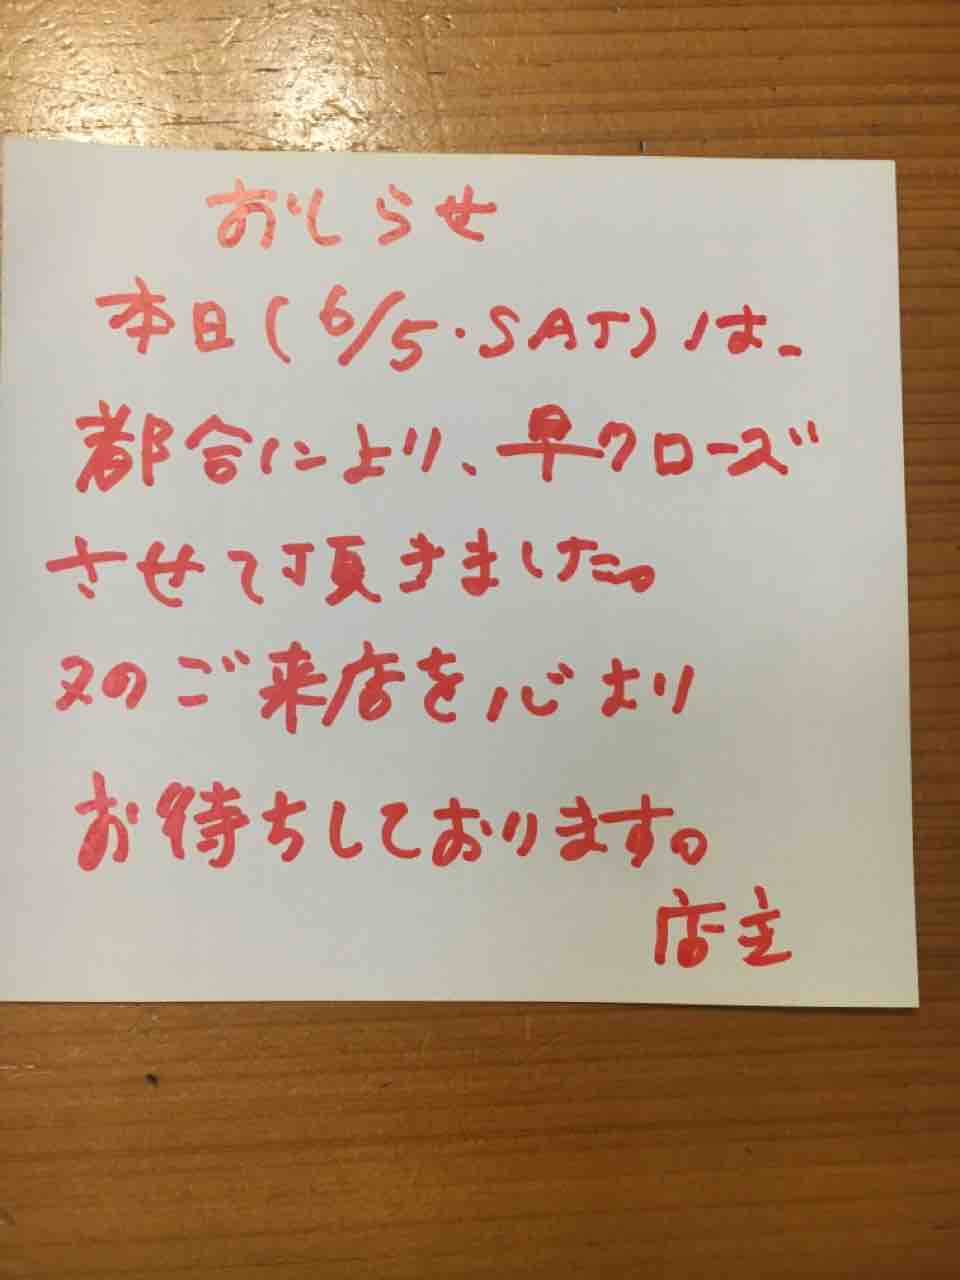 おしらせ
本日(6/5・SAT)は、
都合により、早クローズ
させて頂きました。
又のご来店を心より
お待ちしております。
店主